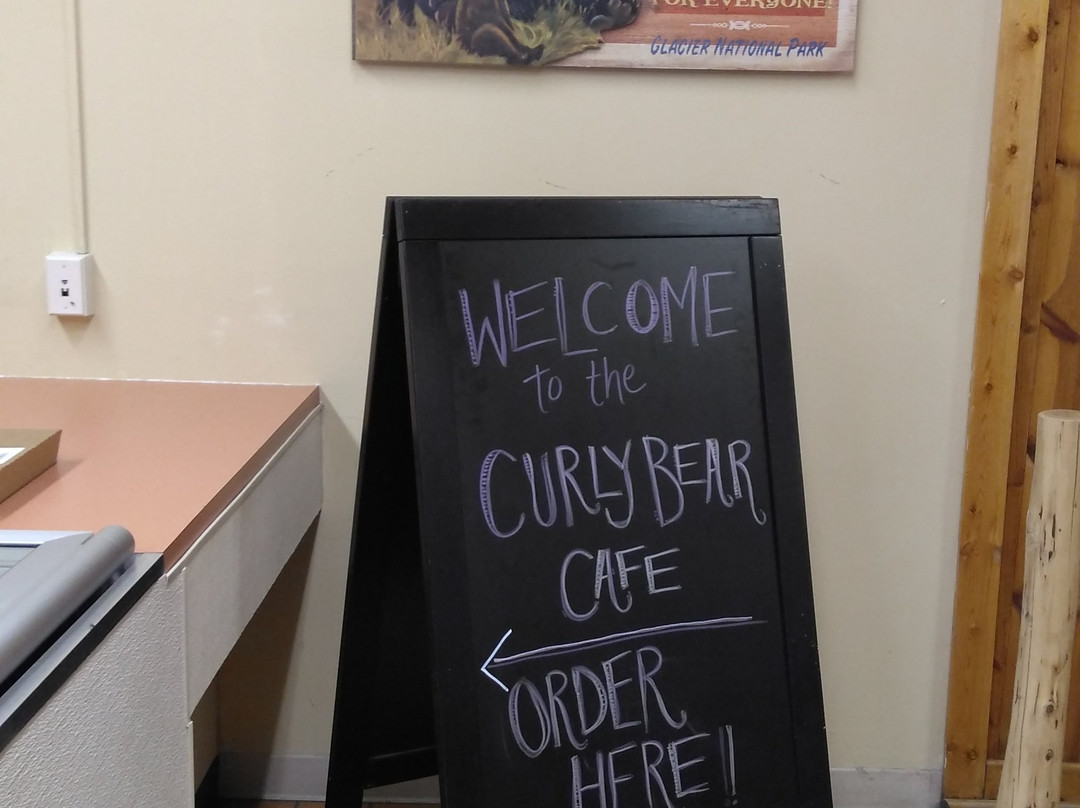 FOR EVERYONE!
GLACIER NATIONAL PARK
WELCOME
to the
CURLY BEAR
CAFE
ORDER
HERE!